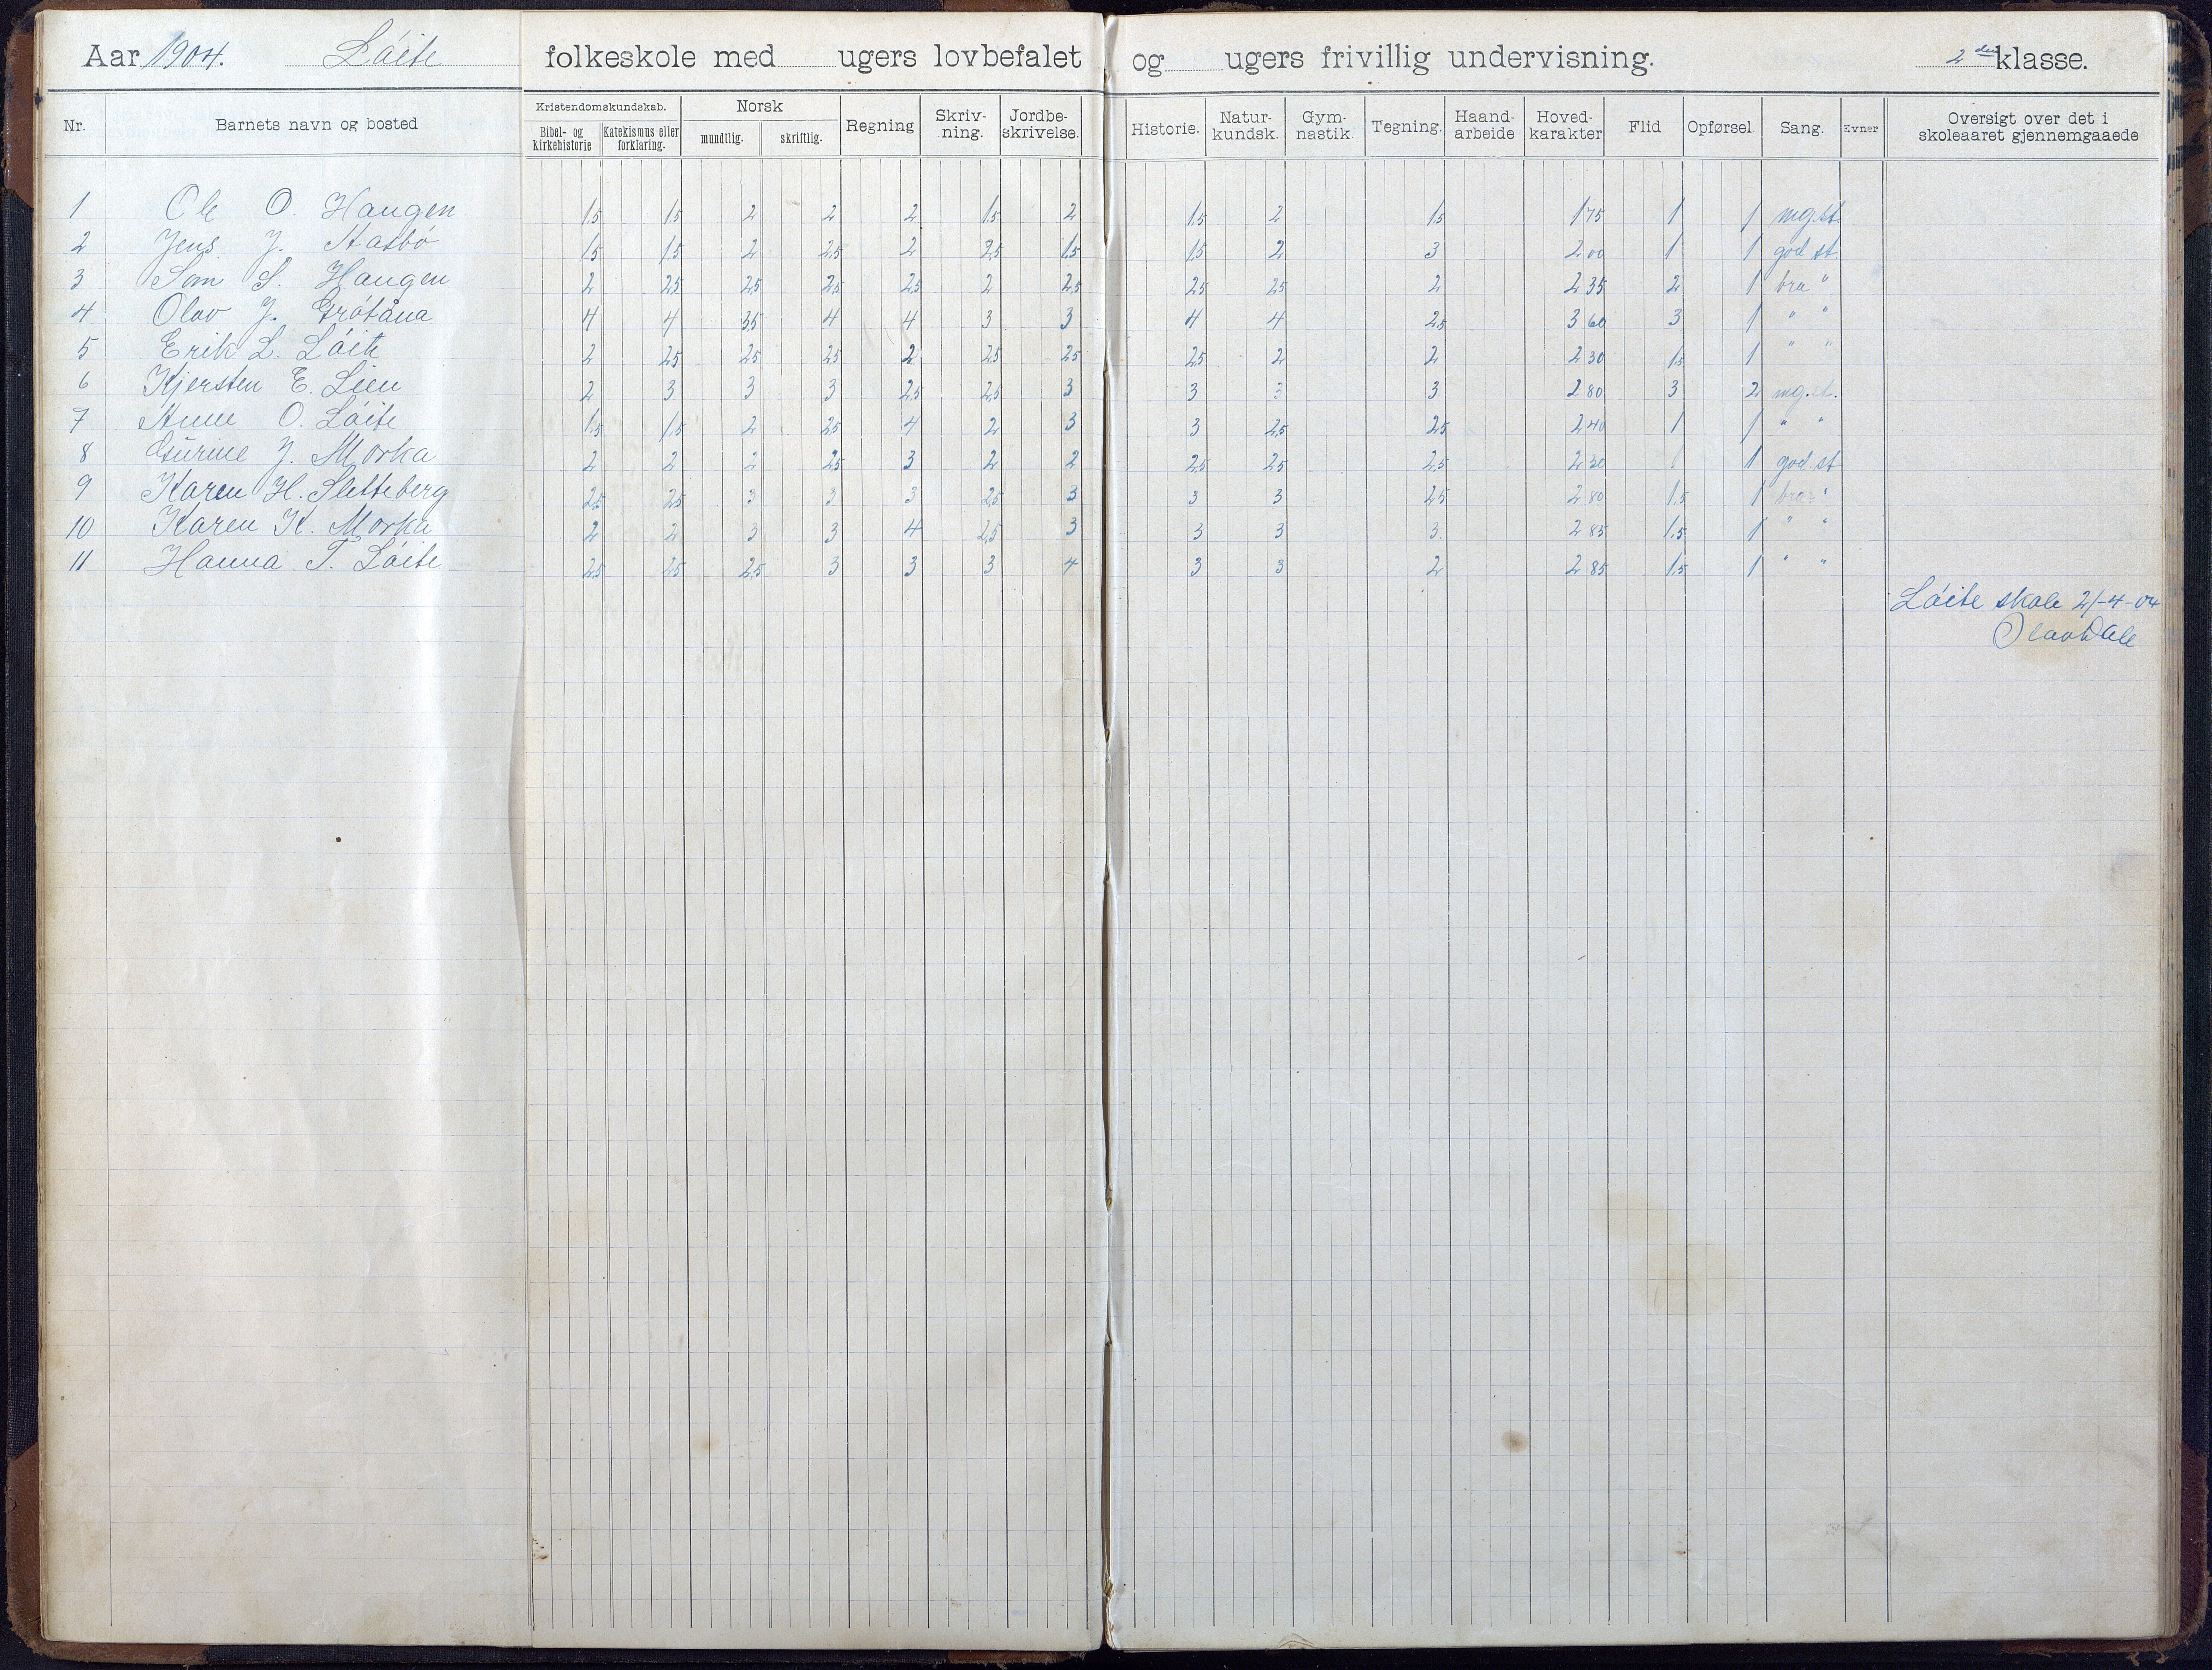 Aar 1904. Löite folkeskole med ugers lovbefalet og ugers frivillig undervisning. 2den klasse.
Nr. Barnets navn og bosted Kristendomskundskab. Bibel- og kirkehistorie Katekismus eller forklaring. Norsk mundtlig. skriftlig. Regning Skriv-ning. Jordbe-skrivelse. Historie. Natur-kundsk. Gym-nastik. Tegning. Haand-arbeide Hoved-karakter Flid Opførsel. Sang. Evner Oversigt over det i skoleaaret gjennemgaaede
1 Ole O. Haugen 1.5 1.5 2 2 2 1.5 2 1.5 2 1.5 1 75 1 1 mg.st.
2 Jens J. 1.5 1.5 2 2.5 2 2.5 1.5 1.5 2 3 2 00 1 1 god st.
3 S. Haugen 2 2.5 2.5 2.5 2.5 2 2.5 2.5 2.5 2 2 35 2 1 bra "
4 Olav J. Grötåna 4 4 3.5 4 4 3 3 4 4 2.5 3 60 3 1 " "
5 Erik L. Löite 2 2.5 2.5 2.5 2 2.5 2.5 2.5 2 2 2 30 1.5 1 " "
6 Kjersten E. Lien 2 3 3 3 2.5 2.5 3 3 3 3 2 80 3 2 mg.st.
7 Anne O. Löite 1.5 1.5 2 2.5 4 2 3 3 2.5 2.5 2 40 1 1 " "
8 Gurine J. Morka 2 2 2 2.5 3 2 2 2.5 2.5 2.5 2 30 1 1 god st
9 Karen H. Sletteberg 2.5 2.5 3 3 3 2.5 3 3 3 2.5 2 80 1.5 1 bra "
10 Karen K. Morka 2 2 3 3 4 2.5 3 3 3 3. 2 85 1.5 1 " "
11 Hanna T. Löite 2.5 2.5 2.5 3 3 3 4 3 3 2 2 85 1.5 1 " "
Löite skole 21-4-04
Olav Dale